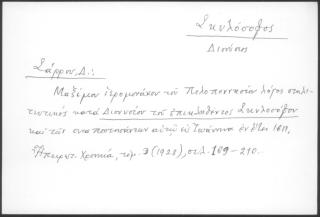 Σκυλόσοφος
Διονύσιος
Σάρρου, Δ.:
Μαξίμου ἱερομονάχου τοῦ Πελοποννησίου λόγος στηλι-
τευτικός κατά Διονυσίου τοῦ ἐπικληθέντος Σκυλοσόφου
καί τῶν συναποστησάντων αὐτῷ ἐν Ἰωάννινα ἐν ἔτει 1611.
Ἠπειρωτ. Χρονικά, τόμ. 3 (1928), σελ. 169-210.